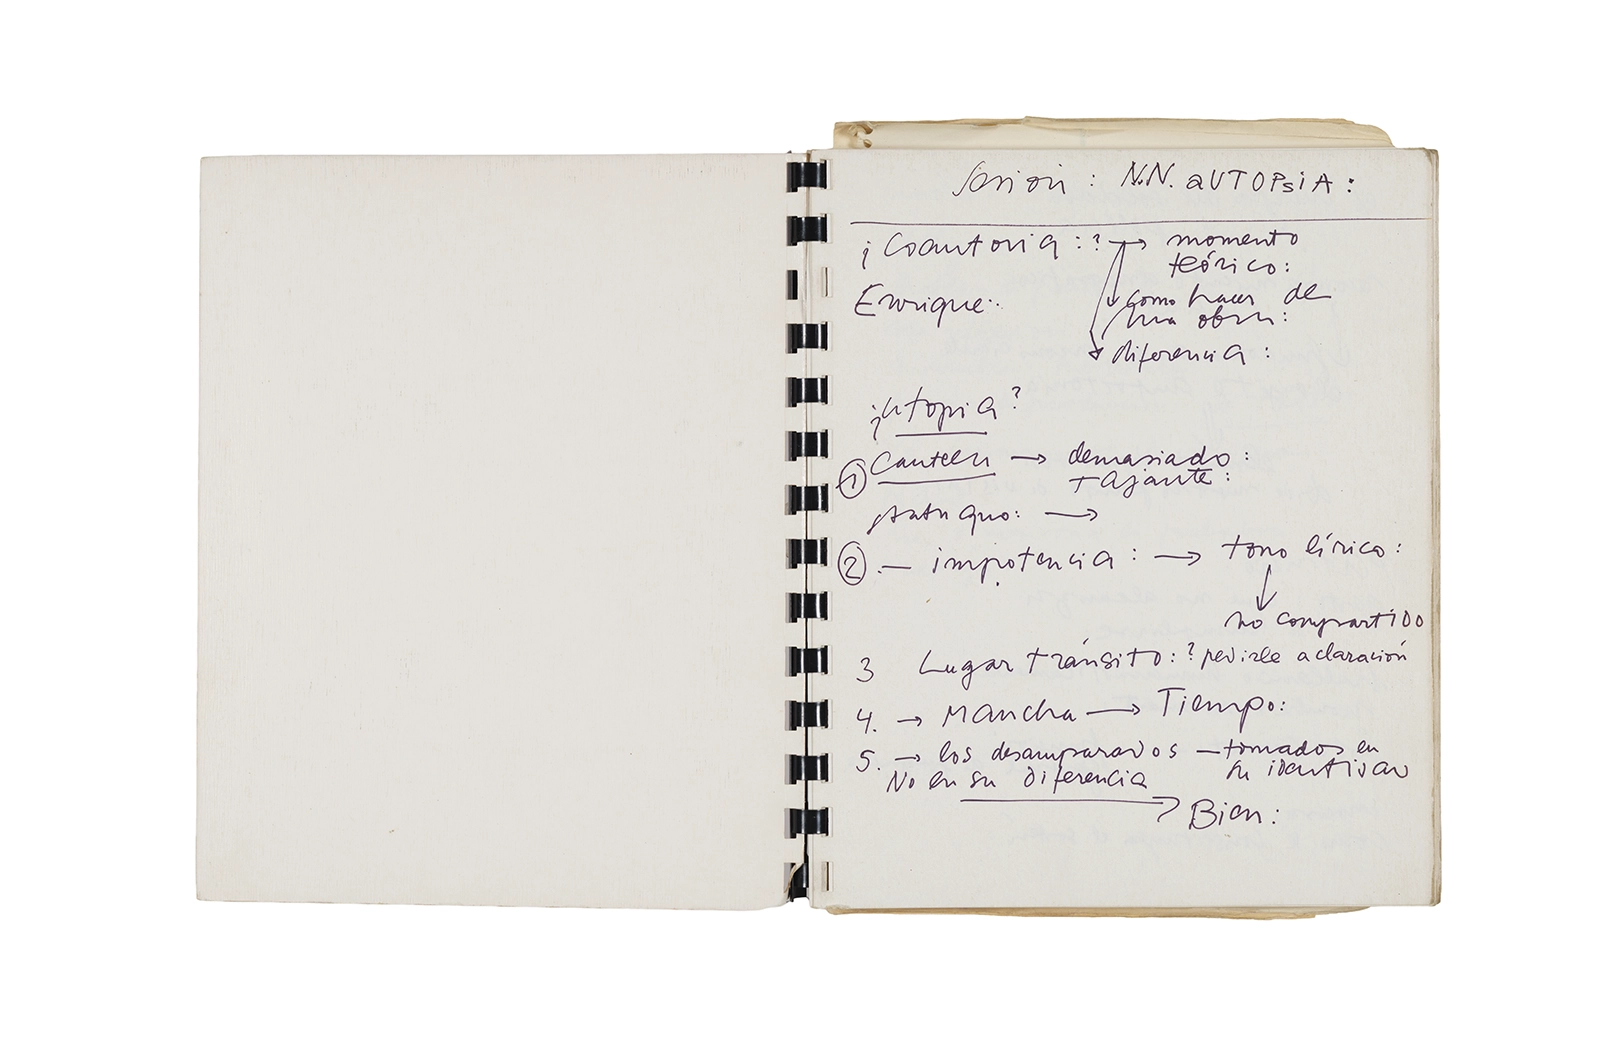 Sesion : N.N. aUTOPsiA :
¡Coautoria : ? → momento
teórico:
Enrique:
como hacer de
una obra:
diferencia :
¡Utopia?
① Cautela → demasiado :
tajante :
statu quo: →
② .— impotencia : → tono lírico :
no compartido
3 Lugar tránsito : ? pedirle aclaración
4. → Mancha → Tiempo:
5. → los desamparados — tomados en
No en su diferencia su identidad
Bien: